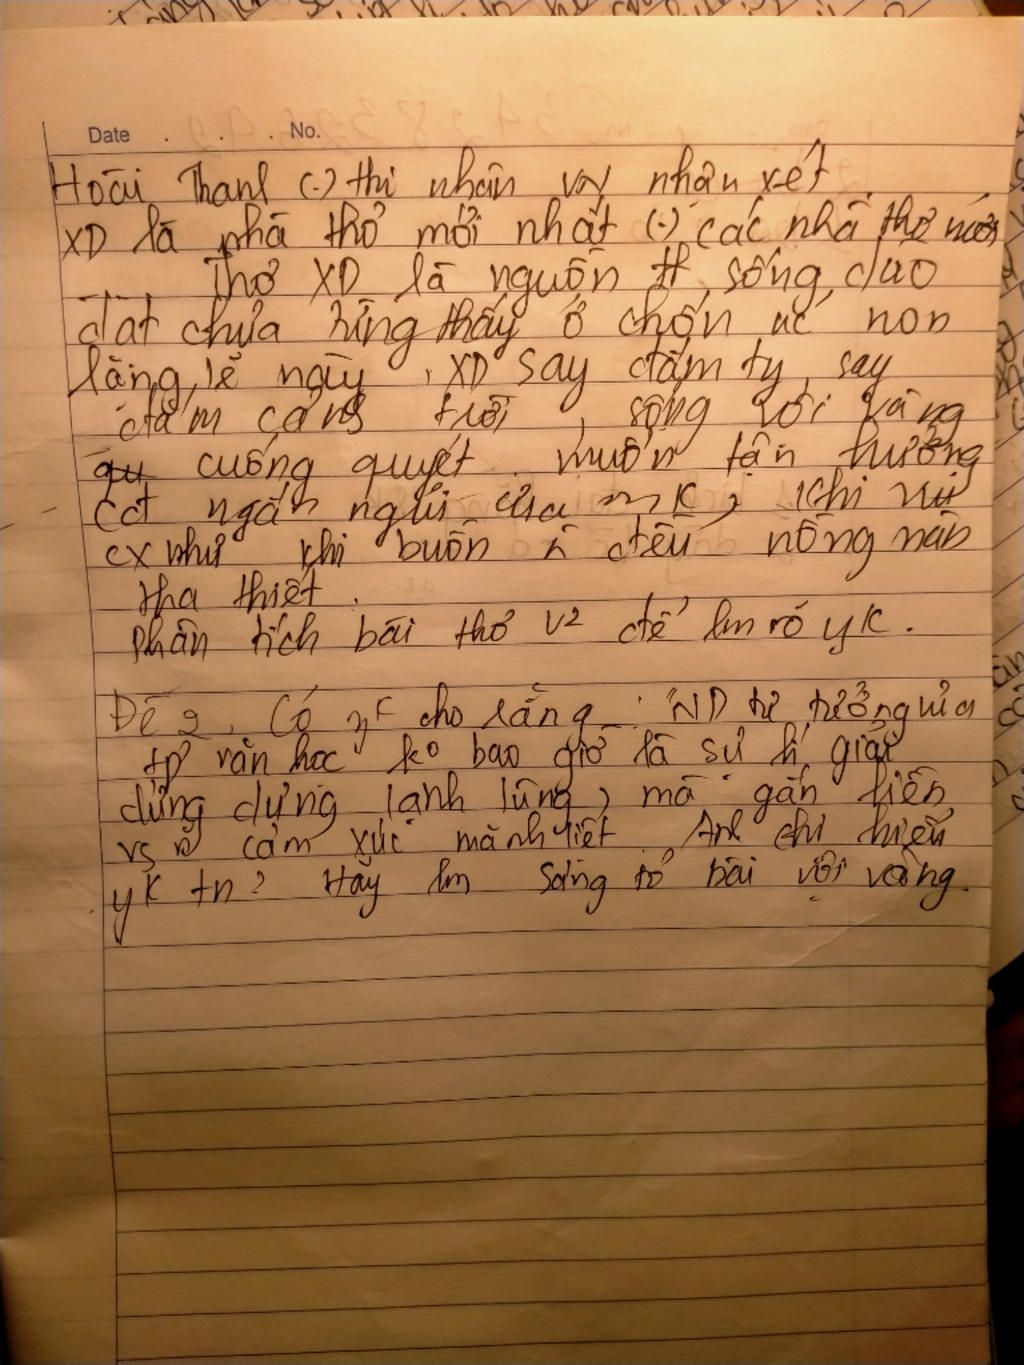 Date . . . No.
Hoài Thanh (-) thi nhân VN nhận xét
XD là nhà thơ mới nhất (-) các nhà thơ mới
... Thơ XD là nguồn sống dào
dạt chưa từng thấy ở chốn nc non
lặng lẽ này, XD say đắm ty, say
đắm cảnh trời, sống vội vàng
cuống quyết. muốn tận hưởng
cđ ngắn ngủi của mk, khi vui
cx như khi buồn n đều nồng nàn
tha thiết.
Phân tích bài thơ V² để lm rõ yk.
Đề 2. Có yk cho rằng: "ND tư tưởng của
tp văn học ko bao giờ là sự lí giải
dửng dưng lạnh lùng, mà gắn liền
vs cảm xúc mãnh liệt. Anh chị hiểu
yk tn? Hãy lm sáng tỏ bài vội vàng.